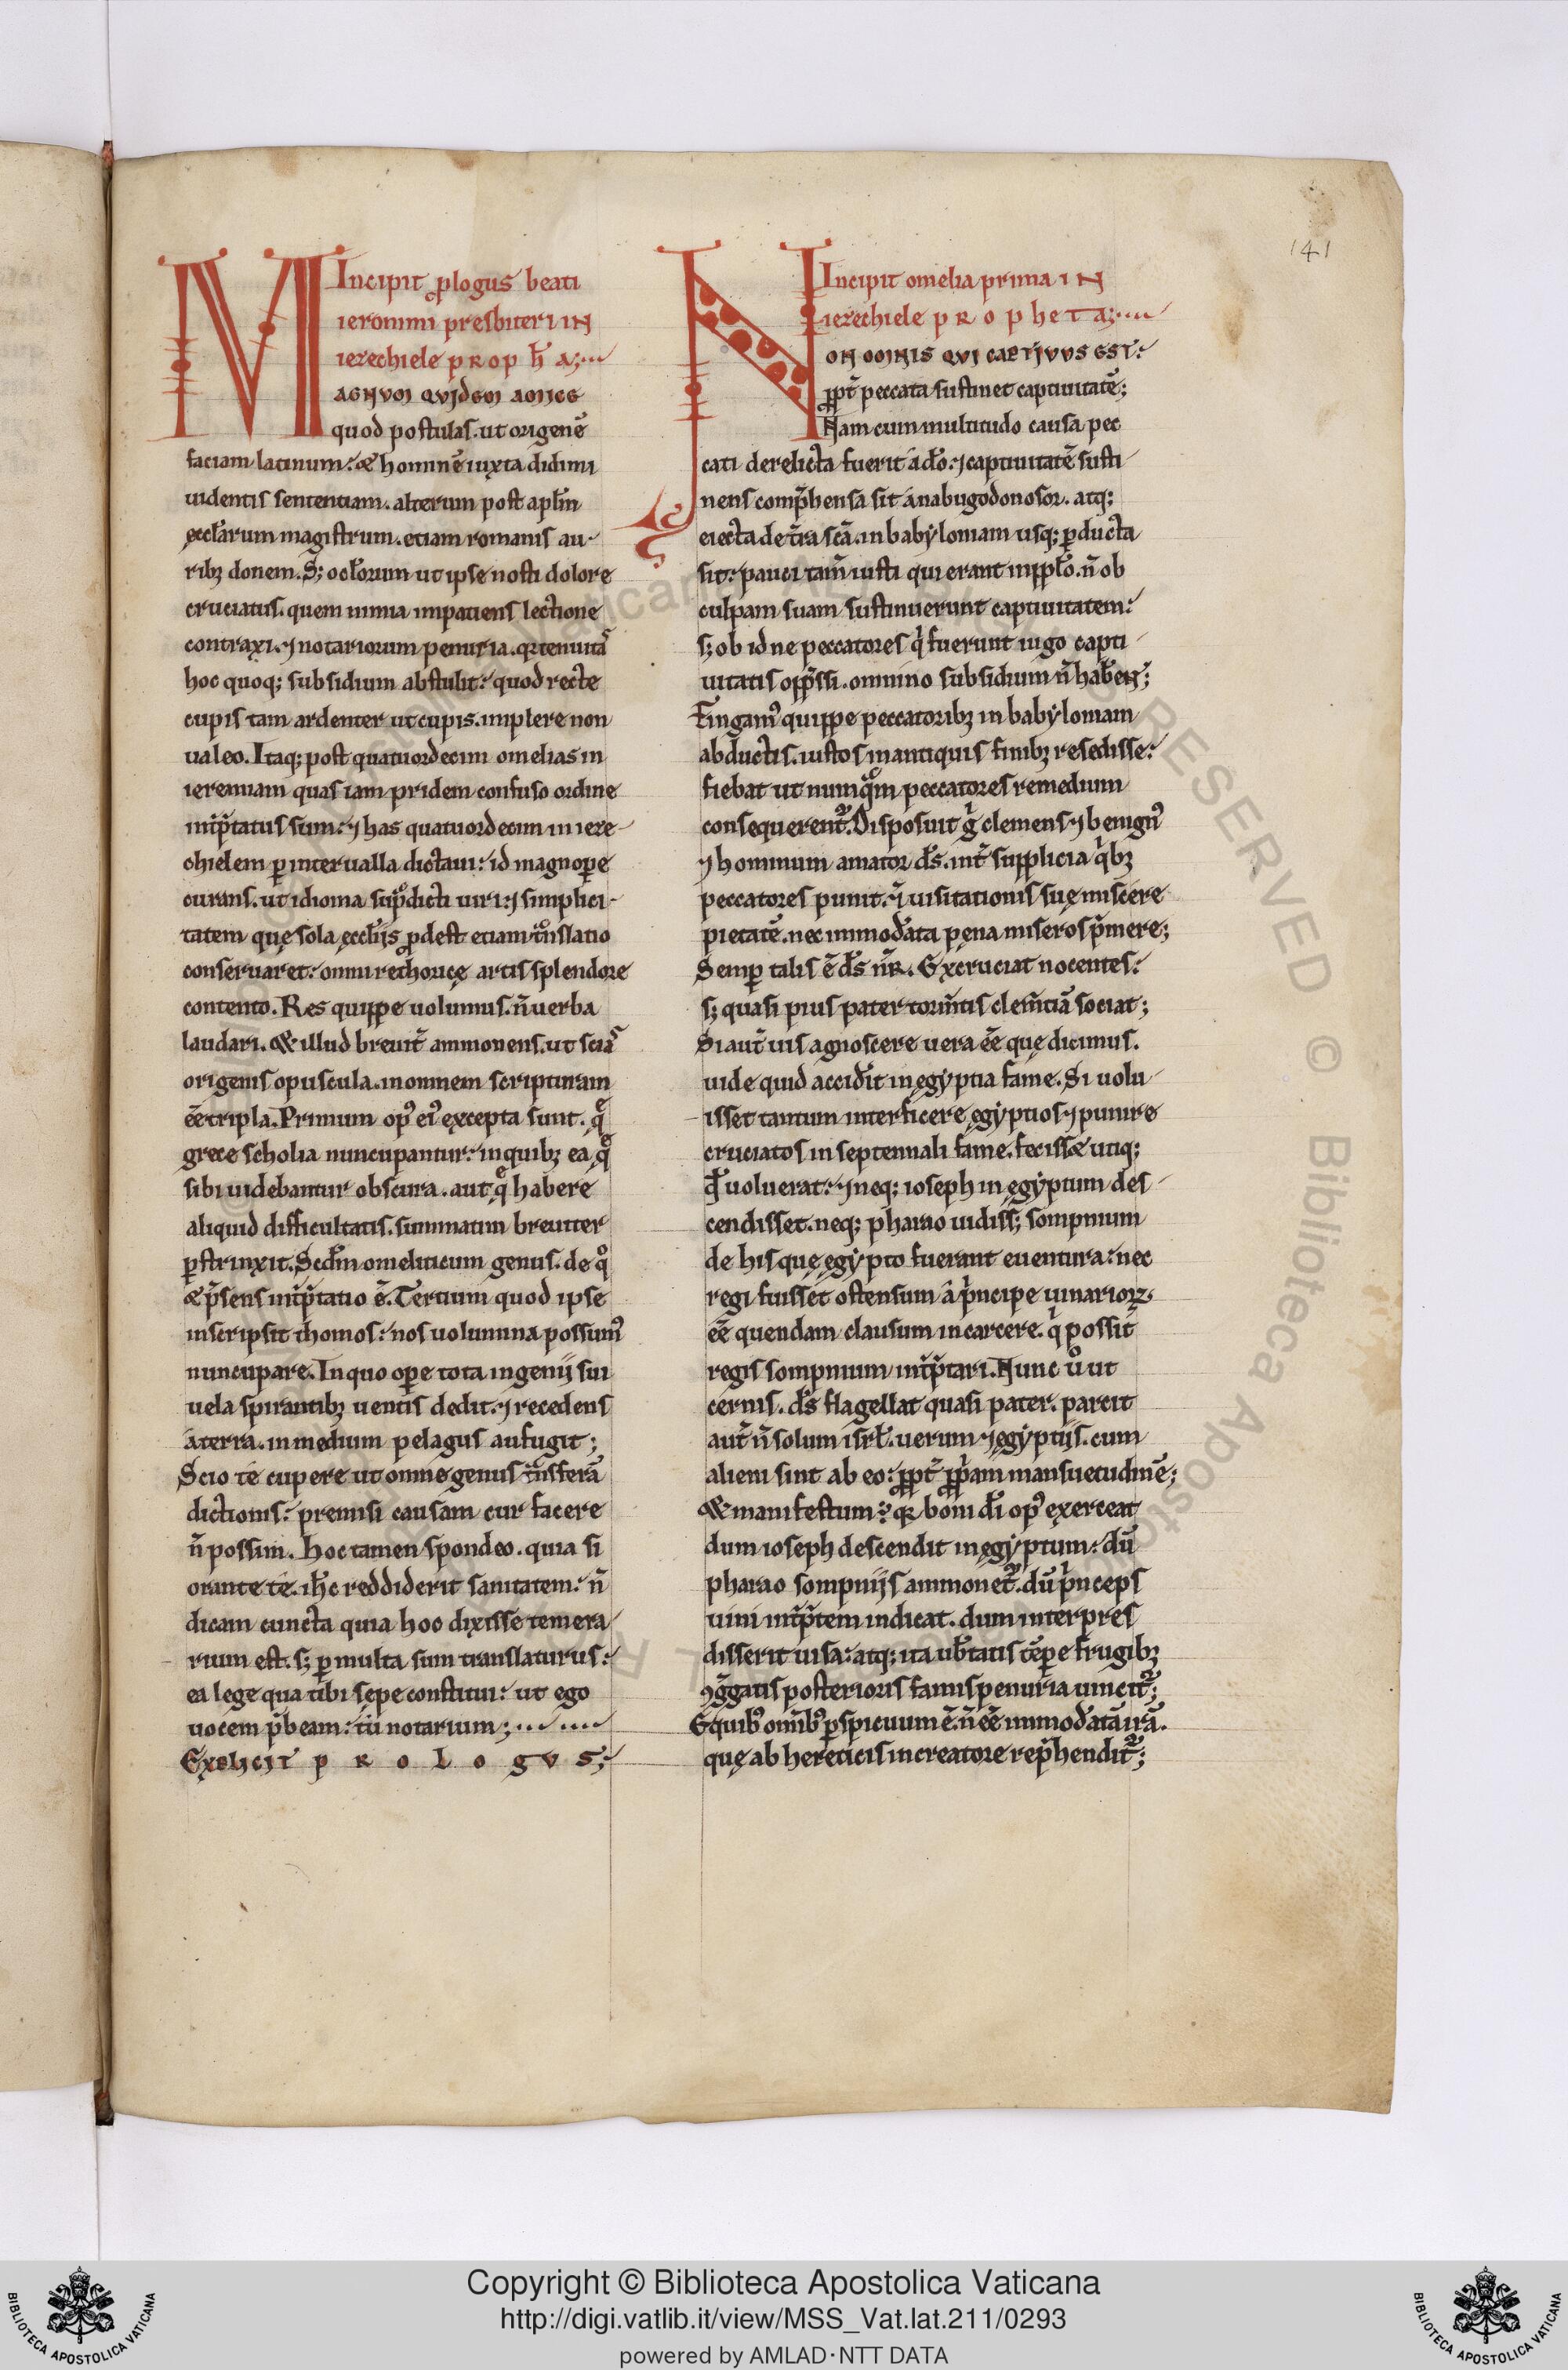 141
Incipit ꝓlogus beati
ieronimi presbiteri in
iezechiele proph̄a;
MAGNUM QUIDEM AMICE
quod postulas. ut origenē
faciam latinum: & hominē iuxta didimi
uidentis sententiam. alterum post apl̄m
ęccl̄arum magistrum. etiam romanis au-
ribꝫ donem. S; ocl̄orum ut ipse nosti dolore
cruciatus. quem nimia impatiens lectione
contraxi. ⁊ notariorum penuria. qꝛ tenuitaˢ
hoc quoq; subsidium abstulit: quod recte
cupis tam ardenter ut cupis. implere non
ualeo. Itaq; post quatuordecim omelias in
ieremiam quas iam pridem confuso ordine
int̄p̄tatus sum: ⁊ has quatuordecim in ieze-
chielem ꝑ interualla dictaui: id magnopere
curans. ut idioma sup̄dicti uiri: ⁊ simplici-
tatem quę sola ęccl̄iis ꝓdest etiam t̄nslatio
conseruaret: omni rethoricę artis splendore
contento. Res quippe uolumus. n̄ uerba
laudari. & illud breuit̄ ammonens. ut sciaˢ
origenis opuscula. in omnem scripturam
ēē tripla. Primum opꝰ eiꝰ excepta sunt. q̄
grece scholia nuncupantur: in quibꝫ ea q̄
sibi uidebantur obscura. aut q̄ habere
aliquid difficultatis. summatim breuiter
ꝑstrinxit. Scd̄m omeliticum genus. de qͦ
& p̄sens int̄p̄tatio ē. Tertium quod ipse
inscripsit thomos: nos uolumina possumꝰ
nuncupare. In quo opere tota ingenii sui
uela spirantibꝫ uentis dedit. ⁊ recedens
a terra. in medium pelagus aufugit;
Scio te cupere ut omne genus t̄nsferā
dictionis: premisi causam cur facere
n̄ possim. Hoc tamen spondeo. quia si
orante te. ih̄c reddiderit sanitatem: n̄
dicam cuncta quia hoc dixisse temera
rium est. s; ꝑmulta sum translaturus:
ea lege qua tibi sępe constitui: ut ego
uocem p̄beam: tu notarium;
Explicit prologus;
Incipit omelia prima in
iezechiele propheta;
NON OMNIS QUI CAPTIVUS EST:
ꝓpt̄ peccata sustinet captiuitatē;
Nam cum multitudo causa pec
cati derelicta fuerit a dō: ⁊ captiuitatē susti
nens comp̄hensa sit a nabugodonosor. atq;
eiecta de t̄ra scā. in babyloniam usq; ꝑducta
sit: pauci tam̄ iusti qui erant in ppl̄o. n̄ ob
culpam suam sustinuerunt captiuitatem:
s; ob id ne peccatores qͥ fuerunt iugo capti
uitatis opp̄ssi. omnino subsidium n̄ haberent;
Fingamꝰ quippe peccatoribꝫ in babyloniam
abductis. iustos in antiquis finibꝫ resedisse:
fiebat ut numqͣm peccatores remedium
consequerent᷑. Disposuit gͥ clemens ⁊ benignꝰ
⁊ hominum amator d̄s. int̄ supplicia qͥbꝫ
peccatores punit: ⁊ uisitationis suę miscere
pietatē. nec immoderata pęna miseros p̄mere;
Semꝑ talis ē d̄s nr̄. Excruciat nocentes:
s; quasi pius pater torm̄tis clem̄tiā sociat;
Si aut̄ uis agnoscere uera ēē quę dicimus.
uide quid acciderit in ęgyptia fame. Si uolu
isset tantum interficere ęgyptios ⁊ punire
cruciatos in septennali fame. fecisset utiq;
qd̄ uoluerat: ⁊ neq; ioseph in ęgyptum des-
cendisset. neq; pharao uidiss; sompnium
de his quę ęgypto fuerant euentura: nec
regi fuisset ostensum a pͥncipe uinarioꝝ.
ēē quendam clausum in carcere. qͥ possit
regis sompnium int̄p̄tari. Nunc uͦ ut
cernis. d̄s flagellat quasi pater. parcit
aut̄ n̄ solum isrl̄. uerum ⁊ ęgyptiis. cum
alieni sint ab eo: ꝓpt̄ ꝓpͥam mansuetudinē;
& manifestum: qꝛ boni d̄i opꝰ exerceat
dum ioseph descendit in ęgyptum: dū
pharao sompniis ammonet᷑. dū pͥnceps
uini int̄p̄tem indicat. dum interpres
disserit uisa: atq; ita ub̄tatis tēꝑe frugibꝫ
ꝯg̅gatis posterioris famis penuria uincit᷑;
E quibꝰ omībꝰ ꝑspicuum ē. n̄ ēē immoderatā irā.
quę ab hereticis in creatore rep̄hendit᷑;
Copyright © Biblioteca Apostolica Vaticana
http://digi.vatlib.it/view/MSS_Vat.lat.211/0293
powered by AMLAD·NTT DATA